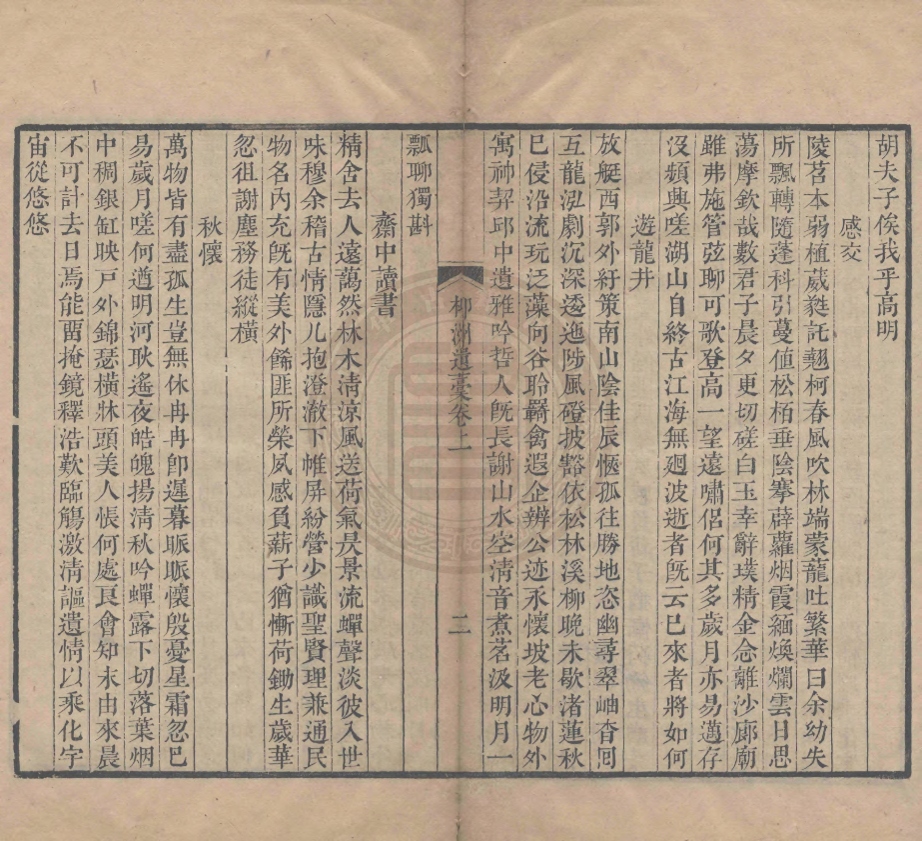 胡夫子俟我乎高明
感交
陵苕本弱植葳蕤託翹柯春風吹林端蒙龍吐繁華曰余幼失
所飄轉隨蓬科引蔓值松栢垂陰搴薜蘿烟霞緬煥爛雲日思
蕩摩欽哉數君子晨夕更切磋白玉幸辭璞精金念離沙廊廟
雖弗施管弦聊可歌登高一望遠嘯侶何其多歲月亦易邁存
沒頻興嗟湖山自終古江海無廻波逝者旣云已來者將如何
遊龍井
放艇西郭外紆策南山陰佳辰愜孤往勝地恣幽尋翠岫杳囘
互龍泓劇沉深逶迤陟風磴披豁依松林溪柳晚未歇渚蓮秋
已侵沿流玩泛藻向谷聆羇禽遐企辨公迹永懷坡老心物外
寓神契邱中遺雅吟哲人旣長謝山水空淸音煮茗汲明月一
柳洲遺稾卷上
二
瓢聊獨斟
齋中讀書
精舍去人遠藹然林木淸涼風送荷氣長景流蟬聲淡彼入世
味穆余稽古情隱几抱澄澈下帷屏紛營少識聖賢理兼通民
物名內充旣有美外餙匪所榮夙感負薪子猶慚荷鋤生歲華
忽徂謝塵務徒縱橫
秋懷
萬物皆有盡孤生豈無休冉冉卽遲暮脈脈懷殷憂星霜忽已
易歲月嗟何遒明河耿遙夜皓魄揚淸秋吟蟬露下切落葉烟
中稠銀缸映戸外錦瑟橫牀頭美人悵何處良會知未由來晨
不可計去日焉能畱掩鏡釋浩歎臨觴激淸謳遺情以乘化宇
宙從悠悠